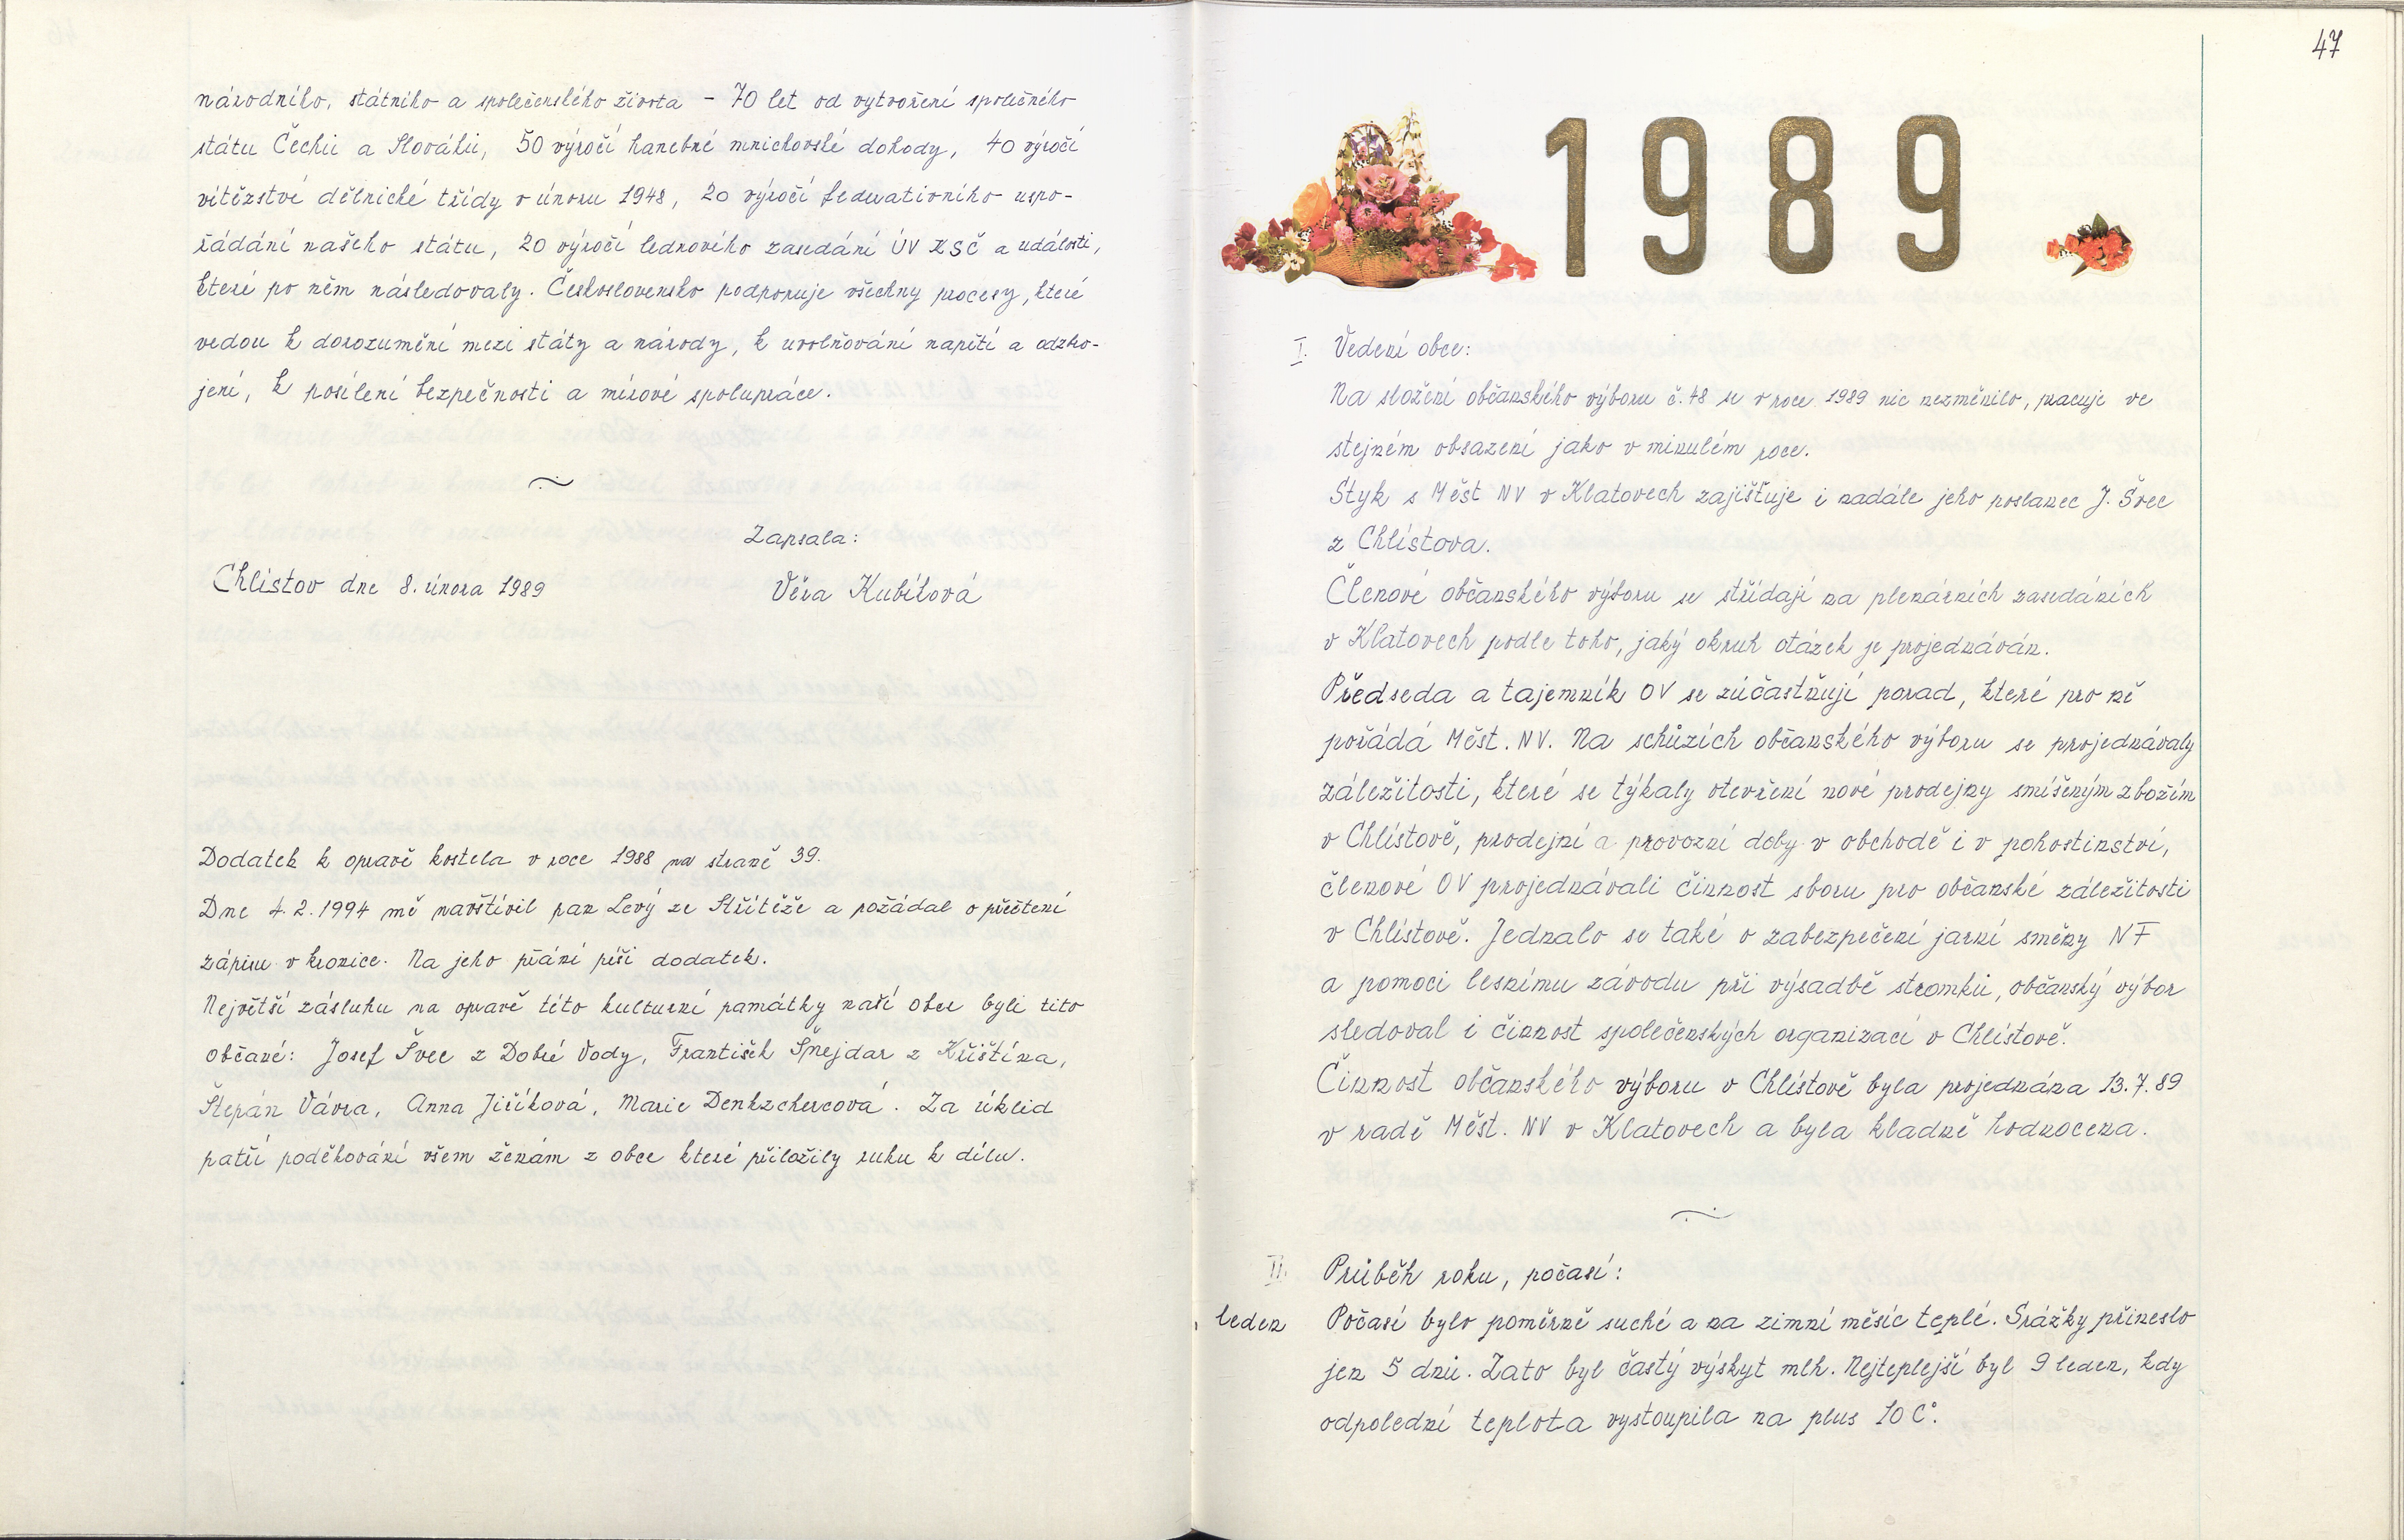 národního, státního a společenského života – 70 let od vytvoření společného
státu Čechů a Slováků, 50 výročí hanebné mnichovské dohody, 40 výročí
vítězství dělnické třídy v únoru 1948, 20 výročí federativního uspo-
řádání našeho státu, 20 výročí lednového zasedání ÚV KSČ a událostí,
které po něm následovaly. Československo podporuje všechny procesy, které
vedou k dorozumění mezi státy a národy, k uvolňování napětí a odzbro-
jení, k posílení bezpečnosti a mírové spolupráce.
Zapsala:
Chlístov dne 8. února 1989 Věra Kubíková
Dodatek k opravě kostela v roce 1988 na straně 39.
Dne 4.2.1994 mě navštívil pan Levý ze Střítěže a požádal o přečtení
zápisu v kronice. Na jeho přání píši dodatek.
Největší zásluhu na opravě této kulturní památky naší obce byli tito
občané: Josef Švec z Dobré Vody, František Šnejdar z Křištína,
Štepán Vávra, Anna Jiříková, Marie Denkzchercová. Za úklid
patří poděkování všem ženám z obce které přiložily ruku k dílu.
47
1989
I. Vedení obce:
Na složení občanského výboru č. 48 se v roce 1989 nic nezměnilo, pracuje ve
stejném obsazení jako v minulém roce.
Styk s Měst NV v Klatovech zajišťuje i nadále jeho poslanec J. Švec
z Chlístova.
Členové občanského výboru se střídají na plenárních zasedáních
v Klatovech podle toho, jaký okruh otázek je projednáván.
Předseda a tajemník OV se zúčastňují porad, které pro ně
pořádá Měst. NV. Na schůzích občanského výboru se projednávaly
záležitosti, které se týkaly otevření nové prodejny smíšeným zbožím
v Chlístově, prodejní a provozní doby v obchodě i v pohostinství,
členové OV projednávali činnost sboru pro občanské záležitosti
v Chlístově. Jednalo se také o zabezpečení jarní směny NF
a pomoci lesnímu závodu při výsadbě stromků, občanský výbor
sledoval i činnost společenských organizací v Chlístově.
Činnost občanského výboru v Chlístově byla projednána 13.7.89
v radě Měst. NV v Klatovech a byla kladně hodnocena.
II. Průběh roku, počasí:
leden Počasí bylo poměrně suché a na zimní měsíc teplé. Srážky přineslo
jen 5 dnů. Zato byl častý výskyt mlh. Nejteplejší byl 9 leden, kdy
odpolední teplota vystoupila na plus 10 C°.